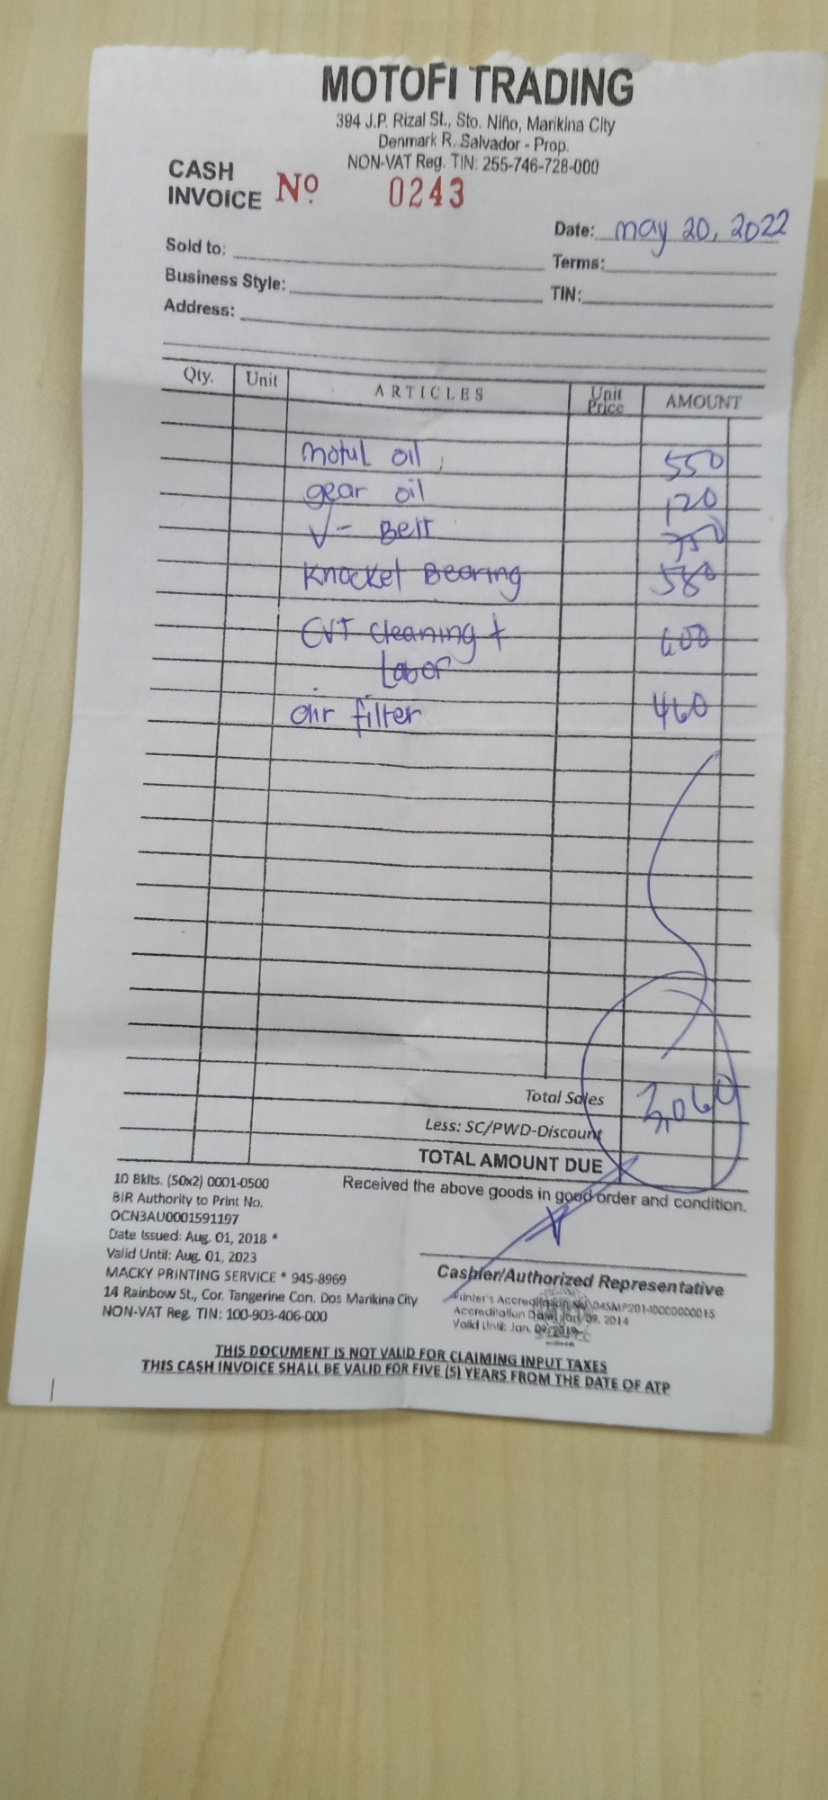 MOTOFI TRADING
394 J.P. Rizal St., Sto. Niño, Marikina City
Denmark R. Salvador - Prop.
NON-VAT Reg. TIN: 255-746-728-000
CASH INVOICE Nº 0243
Date: may 20, 2022
Sold to:
Terms:
Business Style:
TIN:
Address:
Qty. Unit ARTICLES Unit Price AMOUNT
motul oil 550
gear oil 120
V- Belt 750
Knocket Bearing 580
CVT cleaning + 600
Labor
air filter 460
Total Sales 3,060
Less: SC/PWD-Discount
TOTAL AMOUNT DUE
10 Bklts. (50x2) 0001-0500
Received the above goods in good order and condition.
BIR Authority to Print No.
OCN3AU0001591197
Date Issued: Aug. 01, 2018 *
Valid Until: Aug. 01, 2023
MACKY PRINTING SERVICE * 945-8969
14 Rainbow St., Cor. Tangerine Con. Dos Marikina City
NON-VAT Reg. TIN: 100-903-406-000
Cashier/Authorized Representative
Printer's Accreditation No. 045MP20140000000015
Accreditation Date: Jan. 09, 2014
Valid Until: Jan. 09, 2019
THIS DOCUMENT IS NOT VALID FOR CLAIMING INPUT TAXES
THIS CASH INVOICE SHALL BE VALID FOR FIVE (5) YEARS FROM THE DATE OF ATP